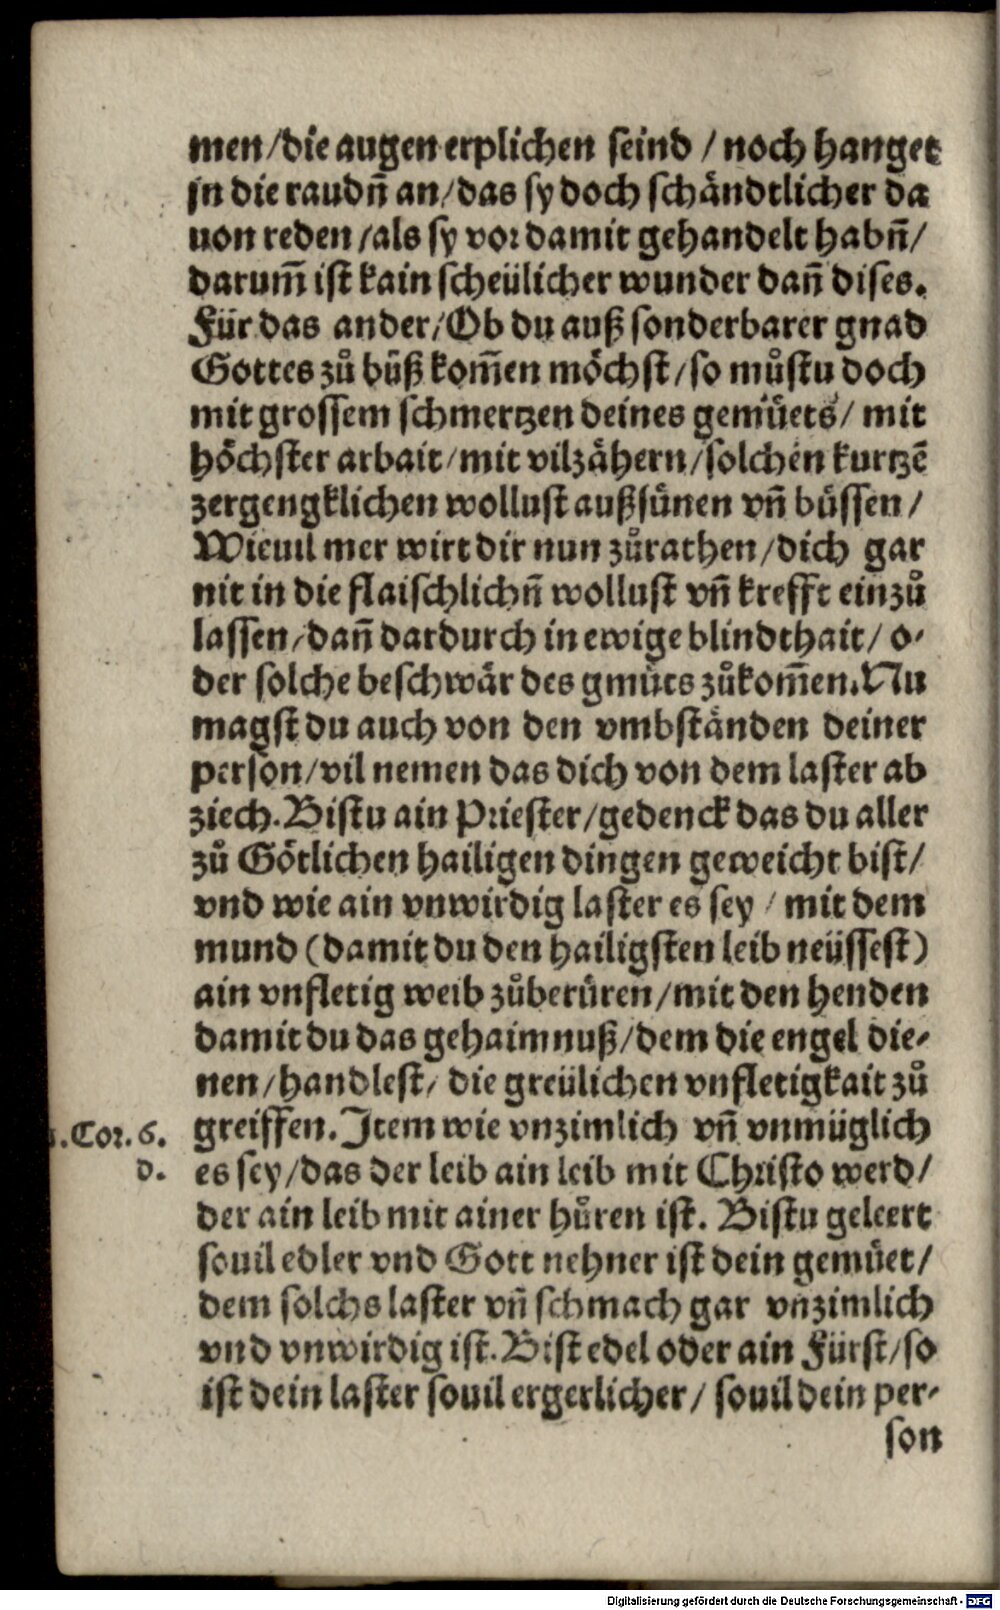 men/die augen erplichen seind / noch hanget
jn die raudn̄ an/das sy doch schändtlicher da
uon reden/als sy vor damit gehandelt habn̄/
darum̄ ist kain scheülicher wunder dan̄ dises.
Für das ander/Ob du auß sonderbarer gnad
Gottes zů bůß kom̄en möchst/so můstu doch
mit grossem schmertzen deines gemüets/ mit
höchster arbait/mit vilzähern/solchen kurtzē
zergengklichen wollust außsünen vn̄ büssen/
Wieuil mer wirt dir nun zůrathen/dich gar
nit in die flaischlichn̄ wollust vn̄ krefft einzů
lassen/dan̄ dardurch in ewige blindthait/ o-
der solche beschwär des gmüts zůkom̄en.Nu
magst du auch von den vmbständen deiner
person/vil nemen das dich von dem laster ab
ziech.Bistu ain Priester/gedenck das du aller
zů Götlichen hailigen dingen geweicht bist/
vnd wie ain vnwirdig laster es sey / mit dem
mund (damit du den hailigsten leib neüssest)
ain vnfletig weib zůberüren/mit den henden
damit du das gehaimnuß/dem die engel die-
nen/handlest/ die greülichen vnfletigkait zů
greiffen.Item wie vnzimlich vn̄ vnmüglich
1.Cor. 6.
d.
es sey/das der leib ain leib mit Christo werd/
der ain leib mit ainer hůren ist. Bistu geleert
souil edler vnd Gott nehner ist dein gemüet/
dem solchs laster vn̄ schmach gar vnzimlich
vnd vnwirdig ist.Bist edel oder ain Fürst/so
ist dein laster souil ergerlicher/ souil dein per-
son
Digitalisierung gefördert durch die Deutsche Forschungsgemeinschaft - DFG